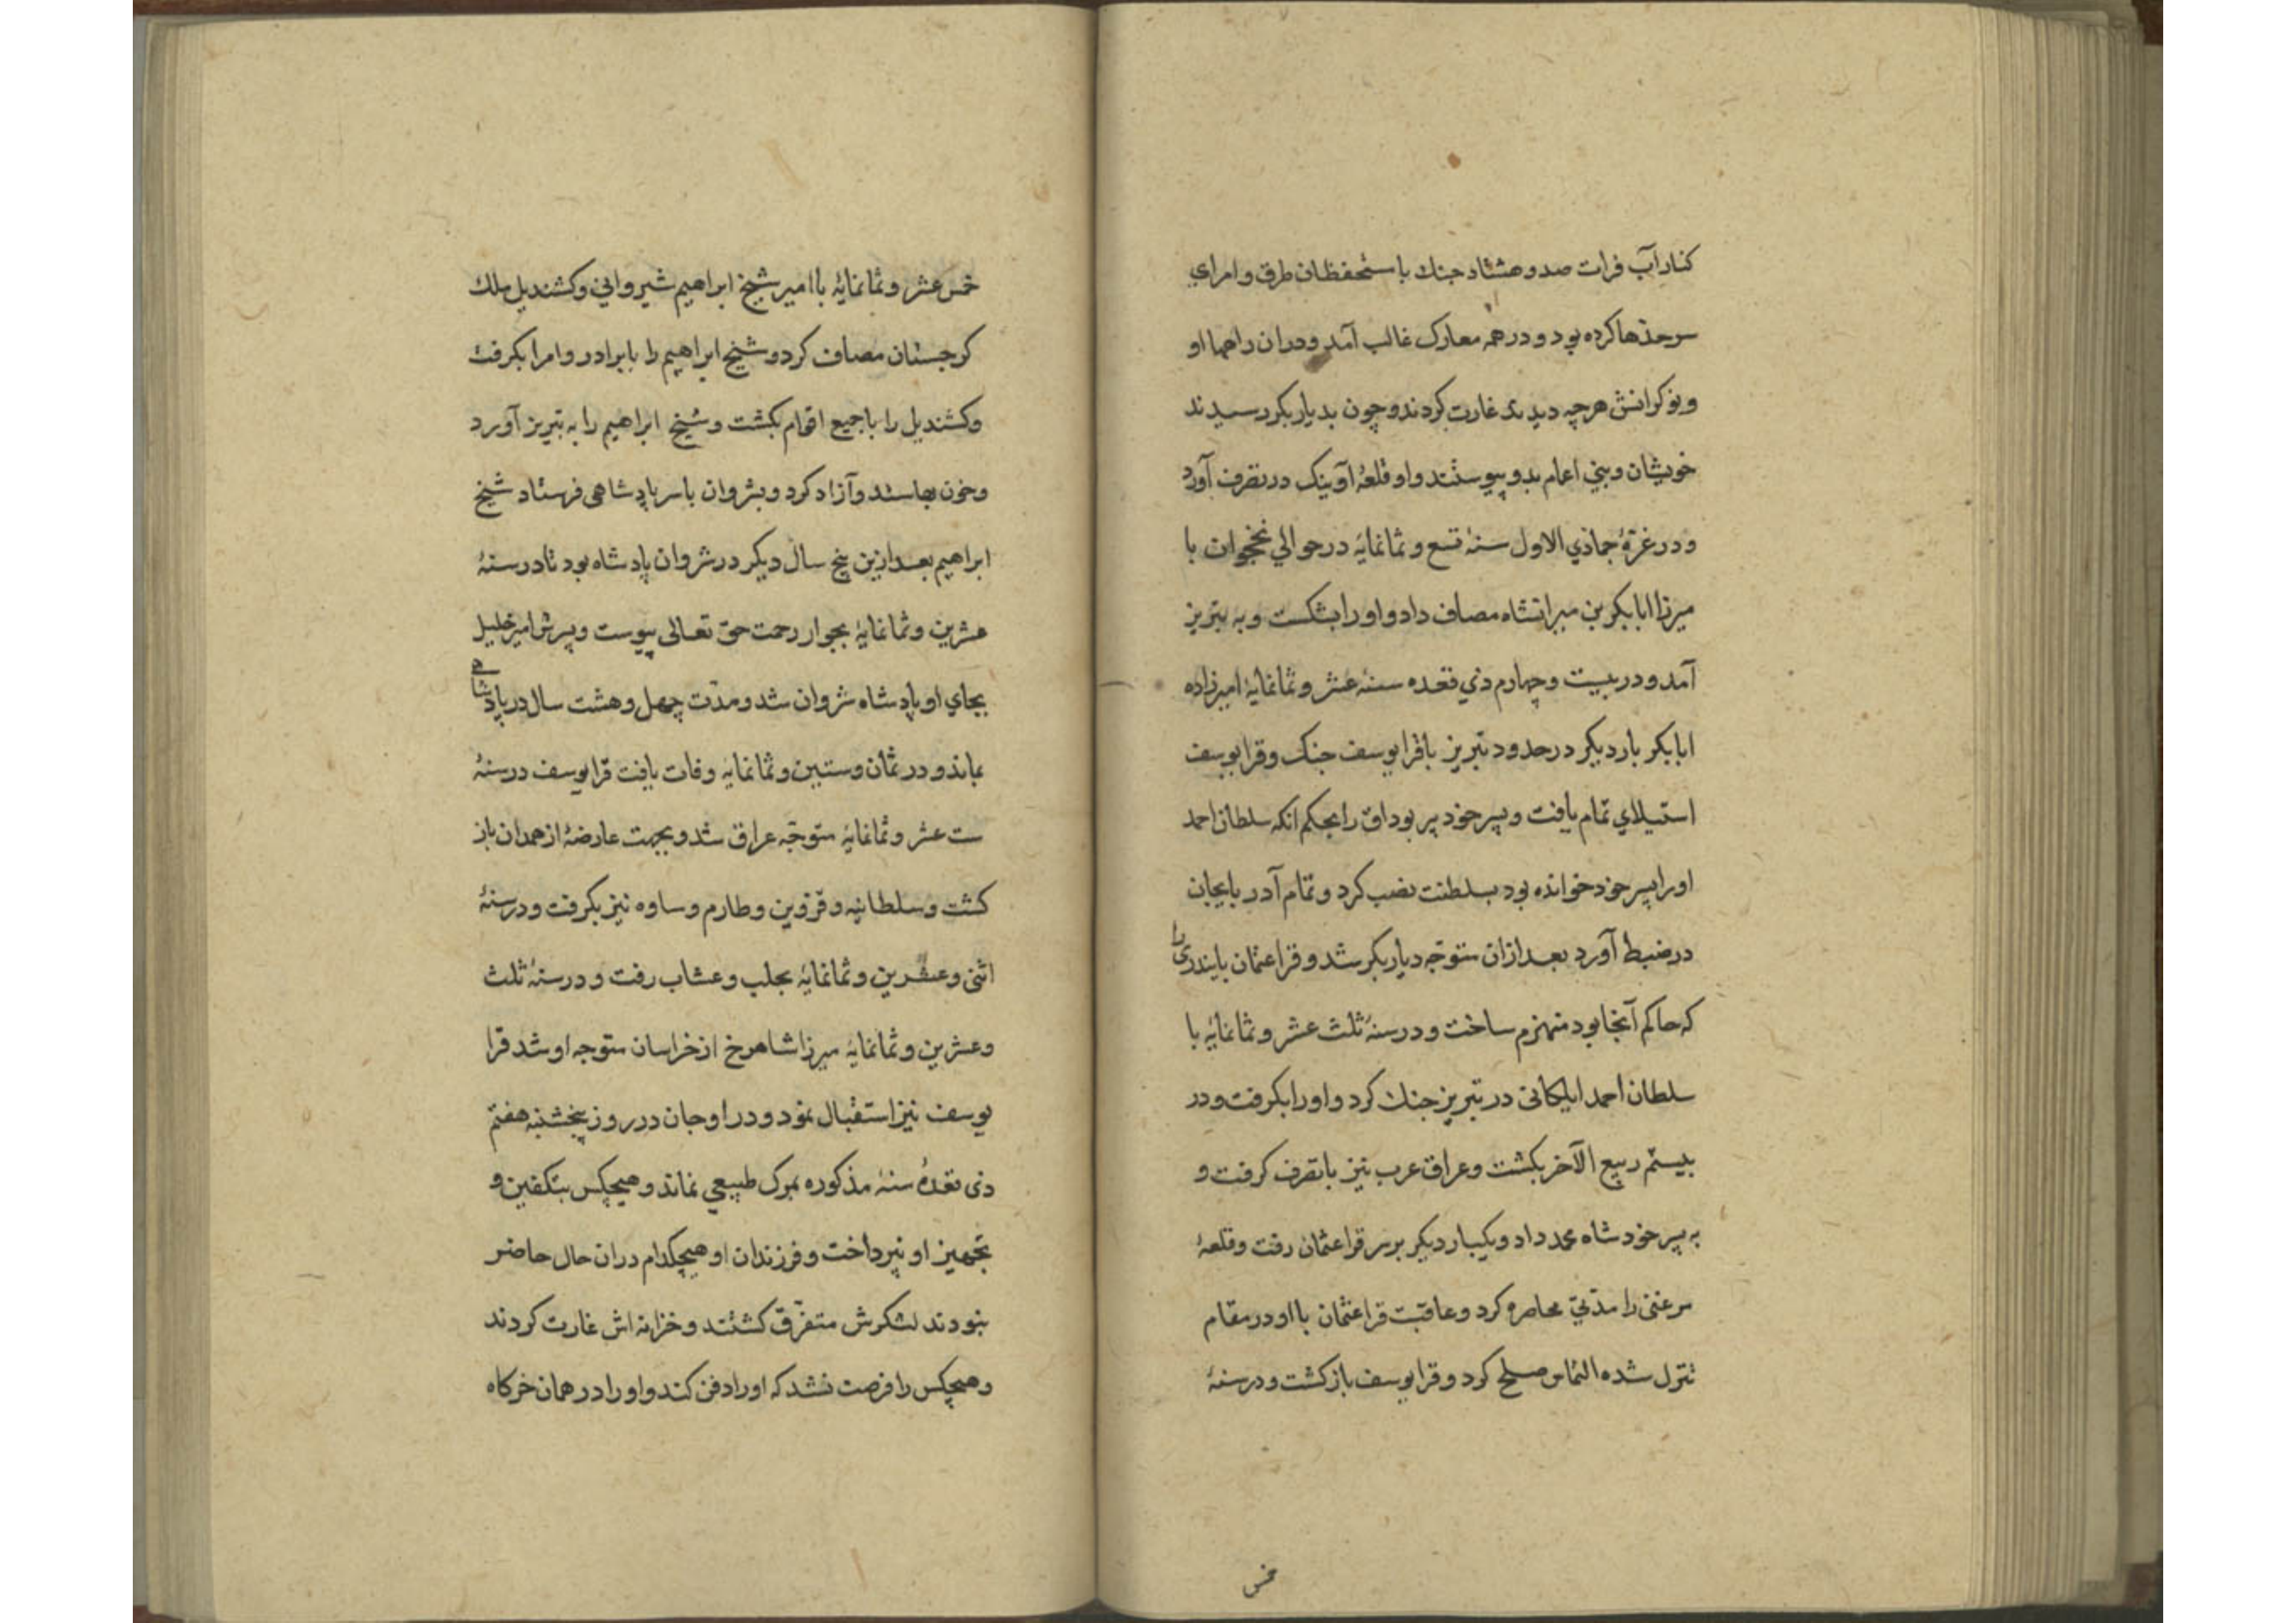 کنار آب فرات صد و هشتاد جنك با ستحفظان طرق و امرای
سرحدها کرده بود و در همه معارک غالب آمد و دران راهها او
و نوکرانش هرچه دیدند غارت کردند و چون بدیاربکر رسیدند
خویشان و بنی اعمام بدو پیوستند و او قلعهٔ آوینک در تصرف آورد
و در غرّهٔ جمادی الاول سنهٔ تسع و ثمانمایهٔ در حوالی نخجوان با
میرزا ابابکر بن میرانشاه مصاف داد و او را بشکست و به تبریز
آمد و در بیست و چهارم ذی قعده سنهٔ عشر و ثمانمایهٔ امیرزاده
ابابکر بار دیکر در حدود تبریز باقرا یوسف جنک وقرا یوسف
استیلای تمام یافت و پسر خود پیر بوداق را بحکم انکه سلطان احمد
او را پسر خود خوانده بود بسلطنت نصب کرد و تمام آدربایجان
در ضبط آورد بعد ازان متوجّه دیاربکر شد و قرا عثمان بایندری را
که حاکم آنجا بود منهزم ساخت و در سنهٔ ثلث عشر و ثمانمایهٔ با
سلطان احمد ایلکانی در تبریز جنك کرد و او را بکرفت و در
بیستم ربیع الآخر بکشت و عراق عرب نیز باتصرف کرفت و
به پسر خود شاه محمد داد و یکبار دیکر بر سر قرا عثمان رفت و قلعهٔ
را مدّتی محاصره کرد و عاقبت قرا عثمان با او در مقام
تنزل شده التماس صلح کرد و قرا یوسف باز کشت و در سنهٔ
خمس
خمس عشر و ثمانمایهٔ با امیر شیخ ابراهیم شیروانی و کشندیل ملك
کرجستان مصاف کرد و شیخ ابراهیم را با برادر و امرا بکرفت
و کشندیل را با جمیع اقوام بکشت و شیخ ابراهیم را به تبریز آورد
و خون بها ستد و آزاد کرد و بشروان با سر پادشاهی فرستاد شیخ
ابراهیم بعد ازین پنج سال دیکر در شروان پادشاه بود تا در سنهٔ
عشرین و ثمانمایهٔ بجوار رحمت حق تعالی پیوست و پسرش امیر خلیل
بجای او پادشاه شروان شد و مدّت چهل و هشت سال در پادشاهی
بماند و در ثمان و ستین و ثمانمایهٔ وفات یافت قرا یوسف در سنهٔ
ست عشر و ثمانمایهٔ متوجّه عراق شد و بجهت عارضهٔ از همدان باز
کشت و سلطانیه و قزوین و طارم و ساوه نیز بکرفت و در سنهٔ
اثنی و عشرین و ثمانمایهٔ بحلب و عنتاب رفت و در سنهٔ ثلث
و عشرین و ثمانمایهٔ میرزا شاهرخ از خراسان متوجه او شد قرا
یوسف نیز استقبال نمود و در اوجان در روز پنجشنبه هفتم
ذی قعدهٔ سنهٔ مذکوره بمرک طبیعی نماند و هیچکس بتکفین و
تجهیز او نپرداخت و فرزندان او هیچکدام دران حال حاضر
نبودند لشکرش متفرّق کشتند و خزانه اش غارت کردند
و هیچکس را فرصت نشد که او را دفن کند و او را در همان خرکاه